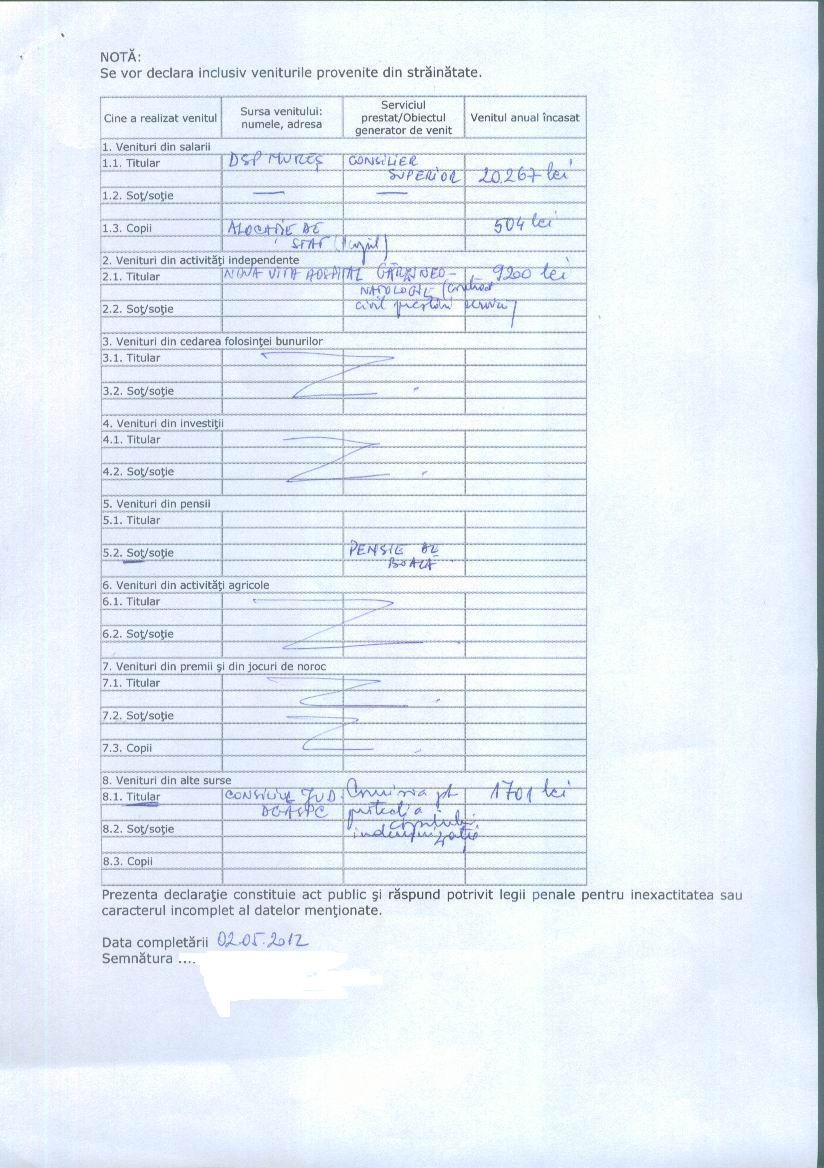 NOTĂ:
Se vor declara inclusiv veniturile provenite din străinătate.
Cine a realizat venitul
Sursa venitului:
numele, adresa
Serviciul
prestat/Obiectul
generator de venit
Venitul anual încasat
1. Venituri din salarii
1.1. Titular DSP MUREȘ CONSILIER
SUPERIOR 20.267 lei
1.2. Soţ/soţie — —
1.3. Copii ALOCAȚIE DE 504 lei
STAT
2. Venituri din activităţi independente
2.1. Titular NOVA VITA HOSPITAL GĂRZI NEO- 9200 lei
NATOLOGIE (contract
2.2. Soţ/soţie civil prestări servicii)
3. Venituri din cedarea folosinţei bunurilor
3.1. Titular
3.2. Soţ/soţie
4. Venituri din investiţii
4.1. Titular
4.2. Soţ/soţie
5. Venituri din pensii
5.1. Titular
5.2. Soţ/soţie PENSIE DE
BOALĂ
6. Venituri din activităţi agricole
6.1. Titular
6.2. Soţ/soţie
7. Venituri din premii şi din jocuri de noroc
7.1. Titular
7.2. Soţ/soţie
7.3. Copii
8. Venituri din alte surse
8.1. Titular CONSILIUL JUD. Comisia pt 1701 lei
DGASPC protecția
copilului
8.2. Soţ/soţie indemnizație
8.3. Copii
Prezenta declaraţie constituie act public şi răspund potrivit legii penale pentru inexactitatea sau
caracterul incomplet al datelor menţionate.
Data completării 02.05.2012
Semnătura ....